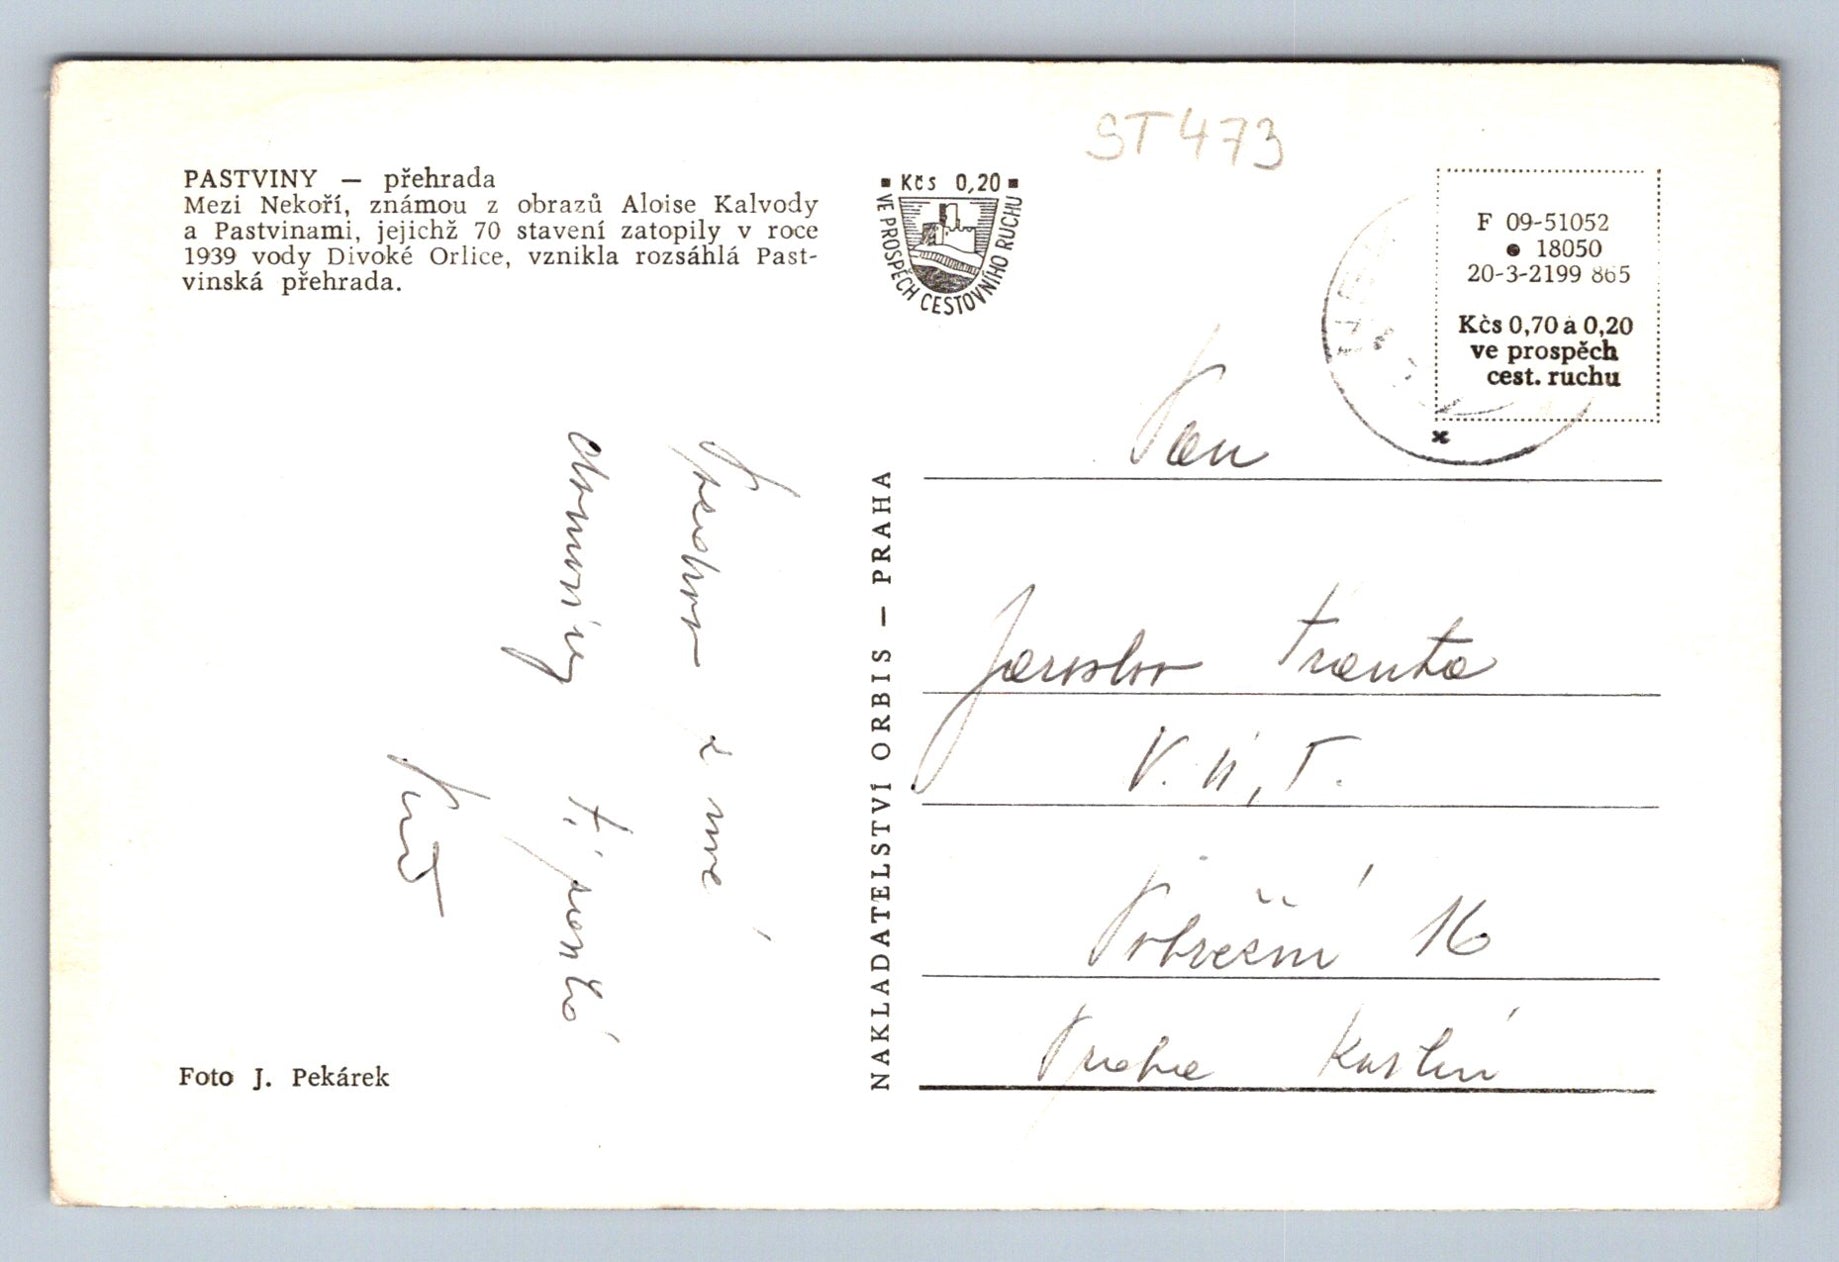 PASTVINY — přehrada
Mezi Nekoří, známou z obrazů Aloise Kalvody
a Pastvinami, jejichž 70 stavení zatopily v roce
1939 vody Divoké Orlice, vznikla rozsáhlá Past-
vinská přehrada.
Foto J. Pekárek
Kčs 0,20
VE PROSPĚCH CESTOVNÍHO RUCHU
NAKLADATELSTVÍ ORBIS — PRAHA
ST473
F 09-51052
● 18050
20-3-2199 865
Kčs 0,70 a 0,20
ve prospěch
cest. ruchu
Pozdrav z mé
dovolené
Pan
Jaroslav Franta
V. Ú. T.
Pobřežní 16
Praha Karlín